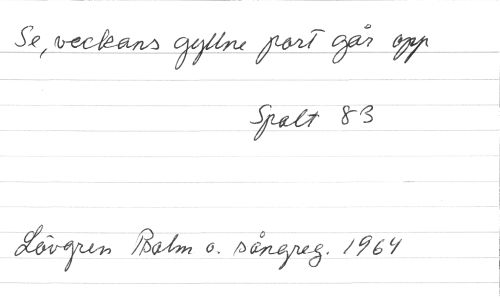 Se, veckans gyllne port går opp
Spalt 83
Lövgren Psalm o. sångreg. 1964